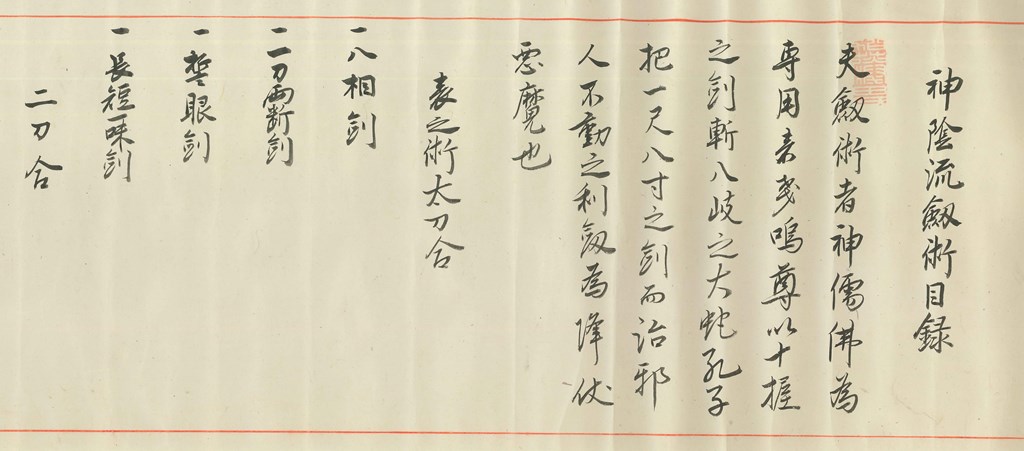 神陰流劔術目録
夫劔術者神儒佛為
専用素戔嗚尊以十握
之剑斬八岐之大蛇孔子
把一尺八寸之剑而治邪
人不動之利劔為降伏
悪魔也
表之術太刀合
一八相剑
一一刀両断剑
一哲眼剑
一長短一味剑
二刀合